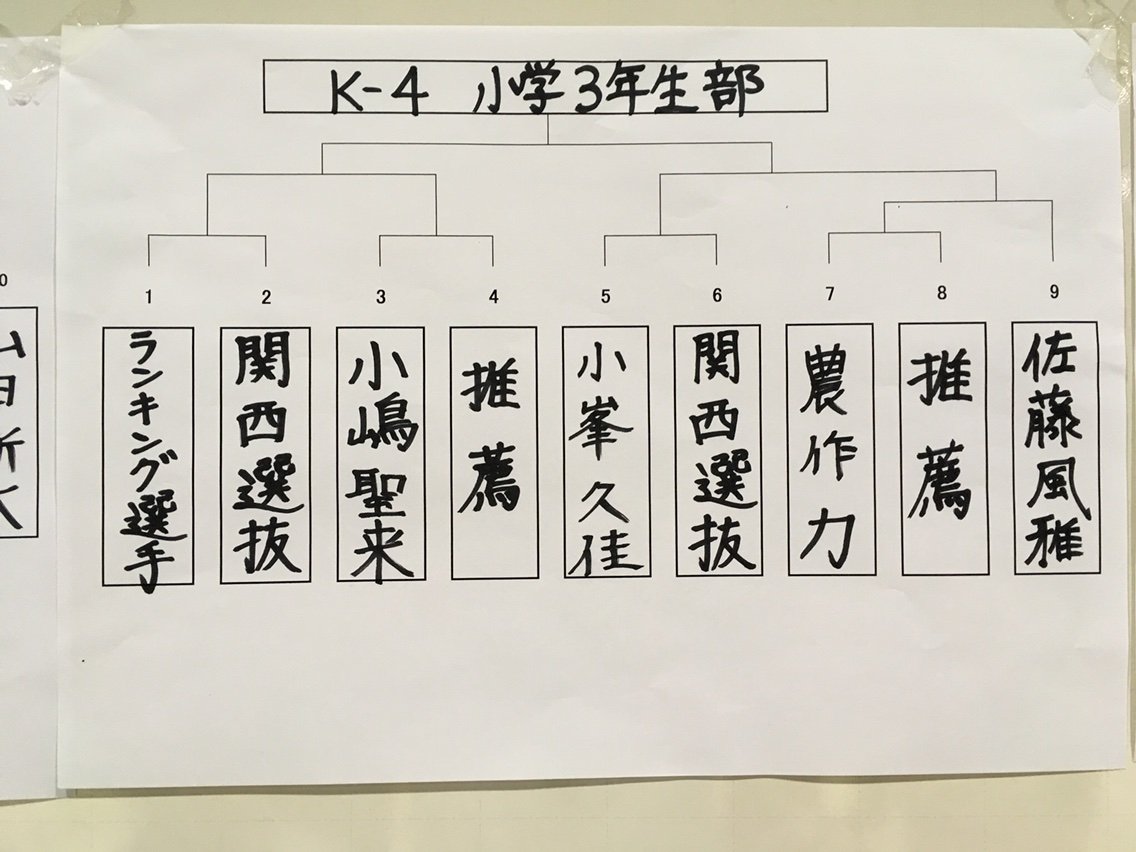 K-4 小学3年生部
1
2
3
4
5
6
7
8
9
ランキング選手
関西選抜
小嶋聖来
推薦
小峯久佳
関西選抜
農作力
推薦
佐藤風雅